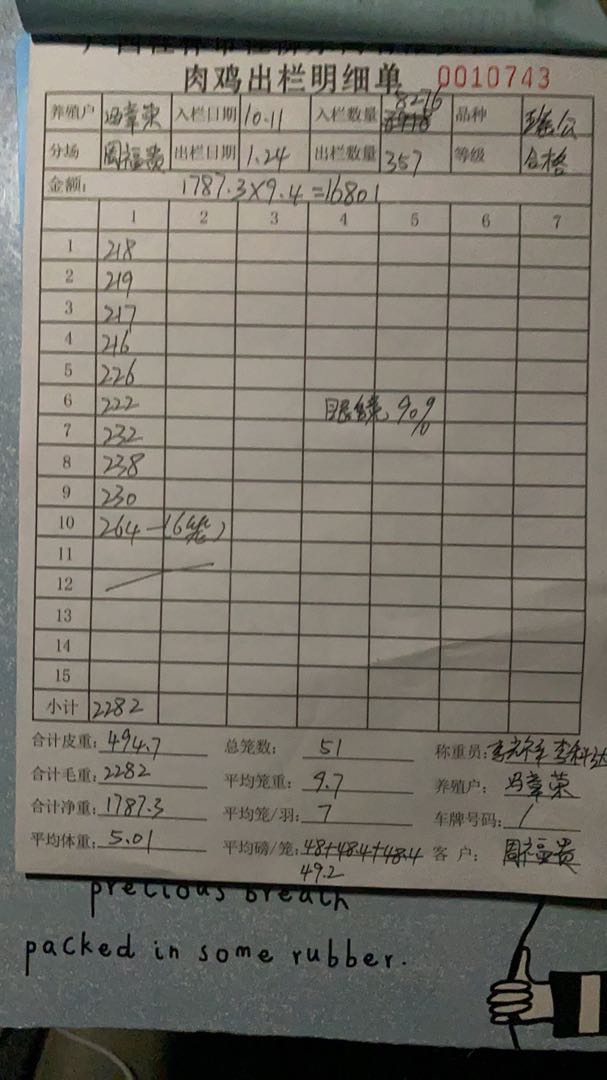 肉鸡出栏明细单 0010743
养殖户 冯章荣 入栏日期 10.11 入栏数量 8276 品种
分场 周福贵 出栏日期 1.24 出栏数量 357 等级 合格
金额: 1787.3×9.4=16801
1 2 3 4 5 6 7
1 218
2 219
3 217
4 216
5 226
6 222 眼镜, 90%
7 232
8 238
9 230
10 264-(6笼)
11
12
13
14
15
小计 2282
合计皮重: 494.7 总笼数: 51 称重员:
合计毛重: 2282 平均笼重: 9.7 养殖户: 冯章荣
合计净重: 1787.3 平均笼/羽: 7 车牌号码: /
平均体重: 5.01 平均磅/笼: 48+48.4+48.4 客户: 周福贵
49.2
precious breath
packed in some rubber.